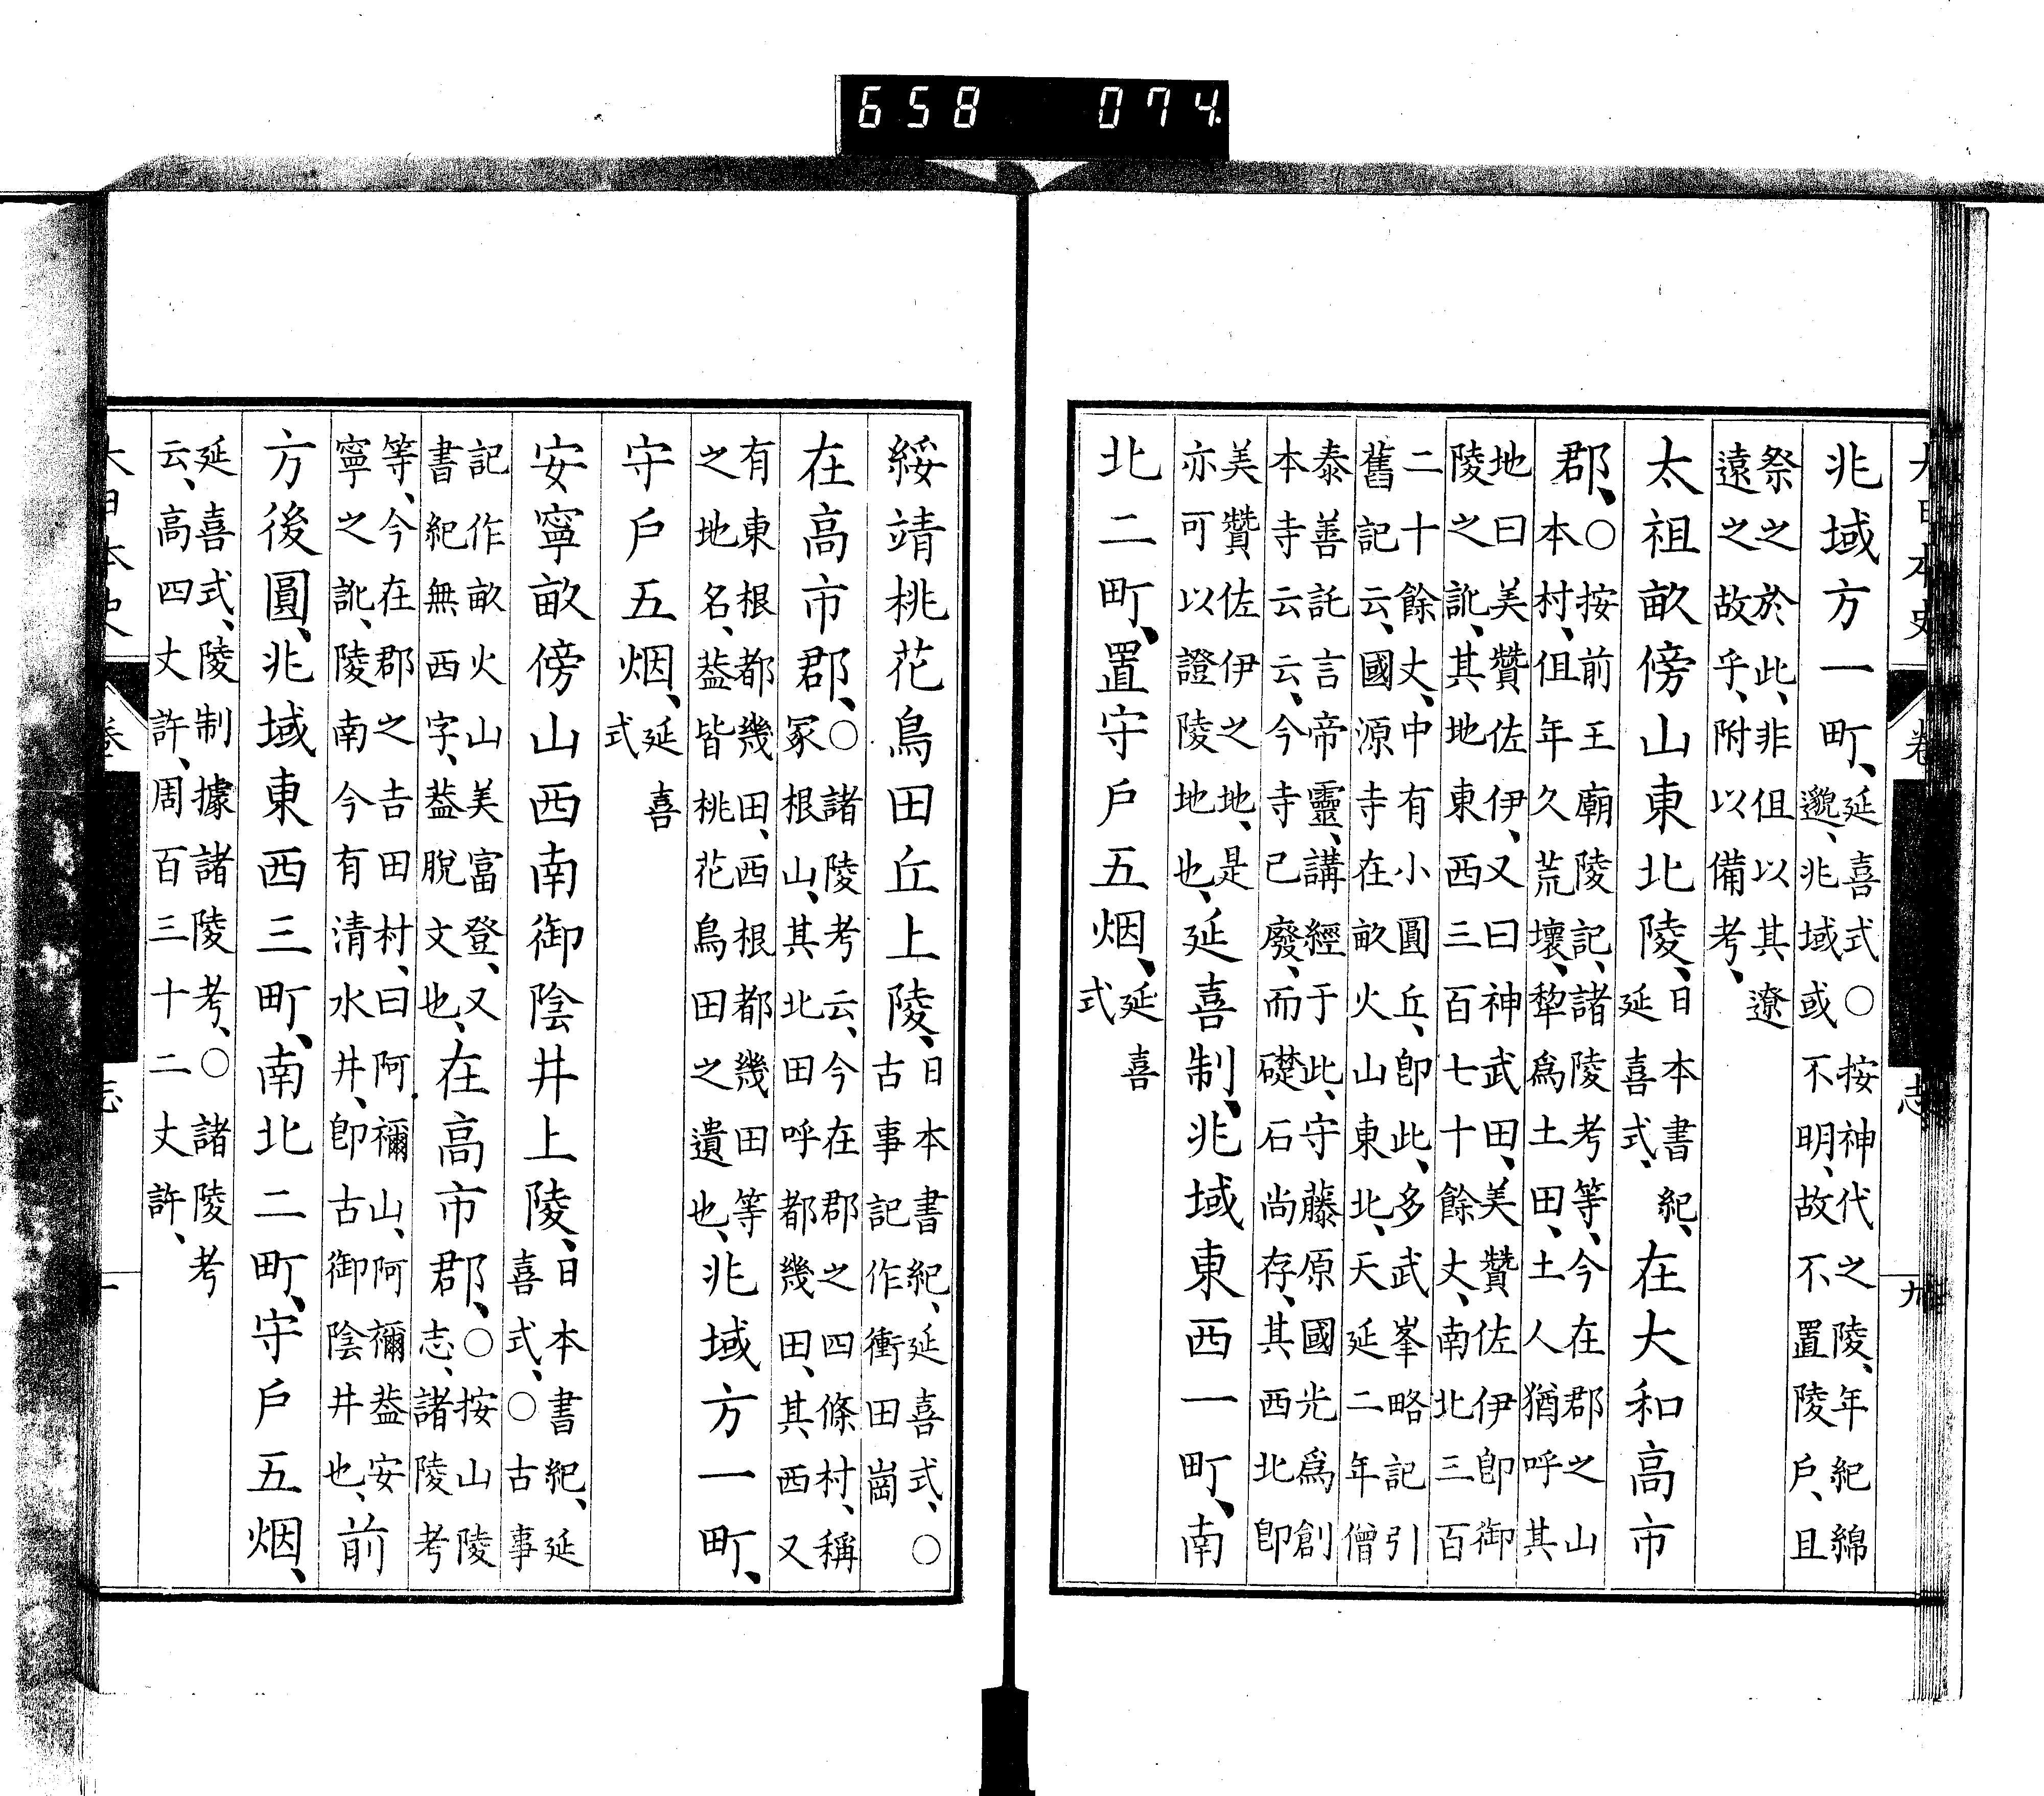 兆域方一町、延喜式○按神代之陵、年紀綿邈、兆域或不明、故不置陵戶、且
祭之於此、非但以其遼遠之故乎、附以備考、
太祖畝傍山東北陵、日本書紀、延喜式、在大和高市
郡、○按前王廟陵記、諸陵考等、今在郡之山本村、但年久荒壞、犂爲土田、土人猶呼其
地曰美贊佐伊、又曰神武田、美贊佐伊卽御陵之訛、其地東西三百七十餘丈、南北三百
二十餘丈、中有小圓丘、卽此、多武峯略記引舊記云、國源寺在畝火山東北、天延二年僧
泰善託言帝靈、講經于此、守藤原國光爲創本寺云云、今寺已廢、而礎石尚存、其西北卽
美贊佐伊之地、是亦可以證陵地也、延喜制、兆域東西一町、南
北二町、置守戶五烟、延喜式
綏靖桃花鳥田丘上陵、日本書紀、延喜式、○古事記作衝田崗
在高市郡、○諸陵考云、今在郡之四條村、稱冢根山、其北田呼都幾田、其西又
有東根都幾田、西根都幾田等之地名、葢皆桃花鳥田之遺也、兆域方一町、
守戶五烟、延喜式
安寧畝傍山西南御陰井上陵、日本書紀、延喜式、○古事
記作畝火山美富登、又書紀無西字、葢脫文也、在高市郡、○按山陵志、諸陵考
等、今在郡之吉田村、曰阿禰山、阿禰葢安寧之訛、陵南今有清水井、卽古御陰井也、前
方後圓、兆域東西三町、南北二町、守戶五烟、
延喜式、陵制據諸陵考、○諸陵考云、高四丈許、周百三十二丈許、
大日本史 卷 志